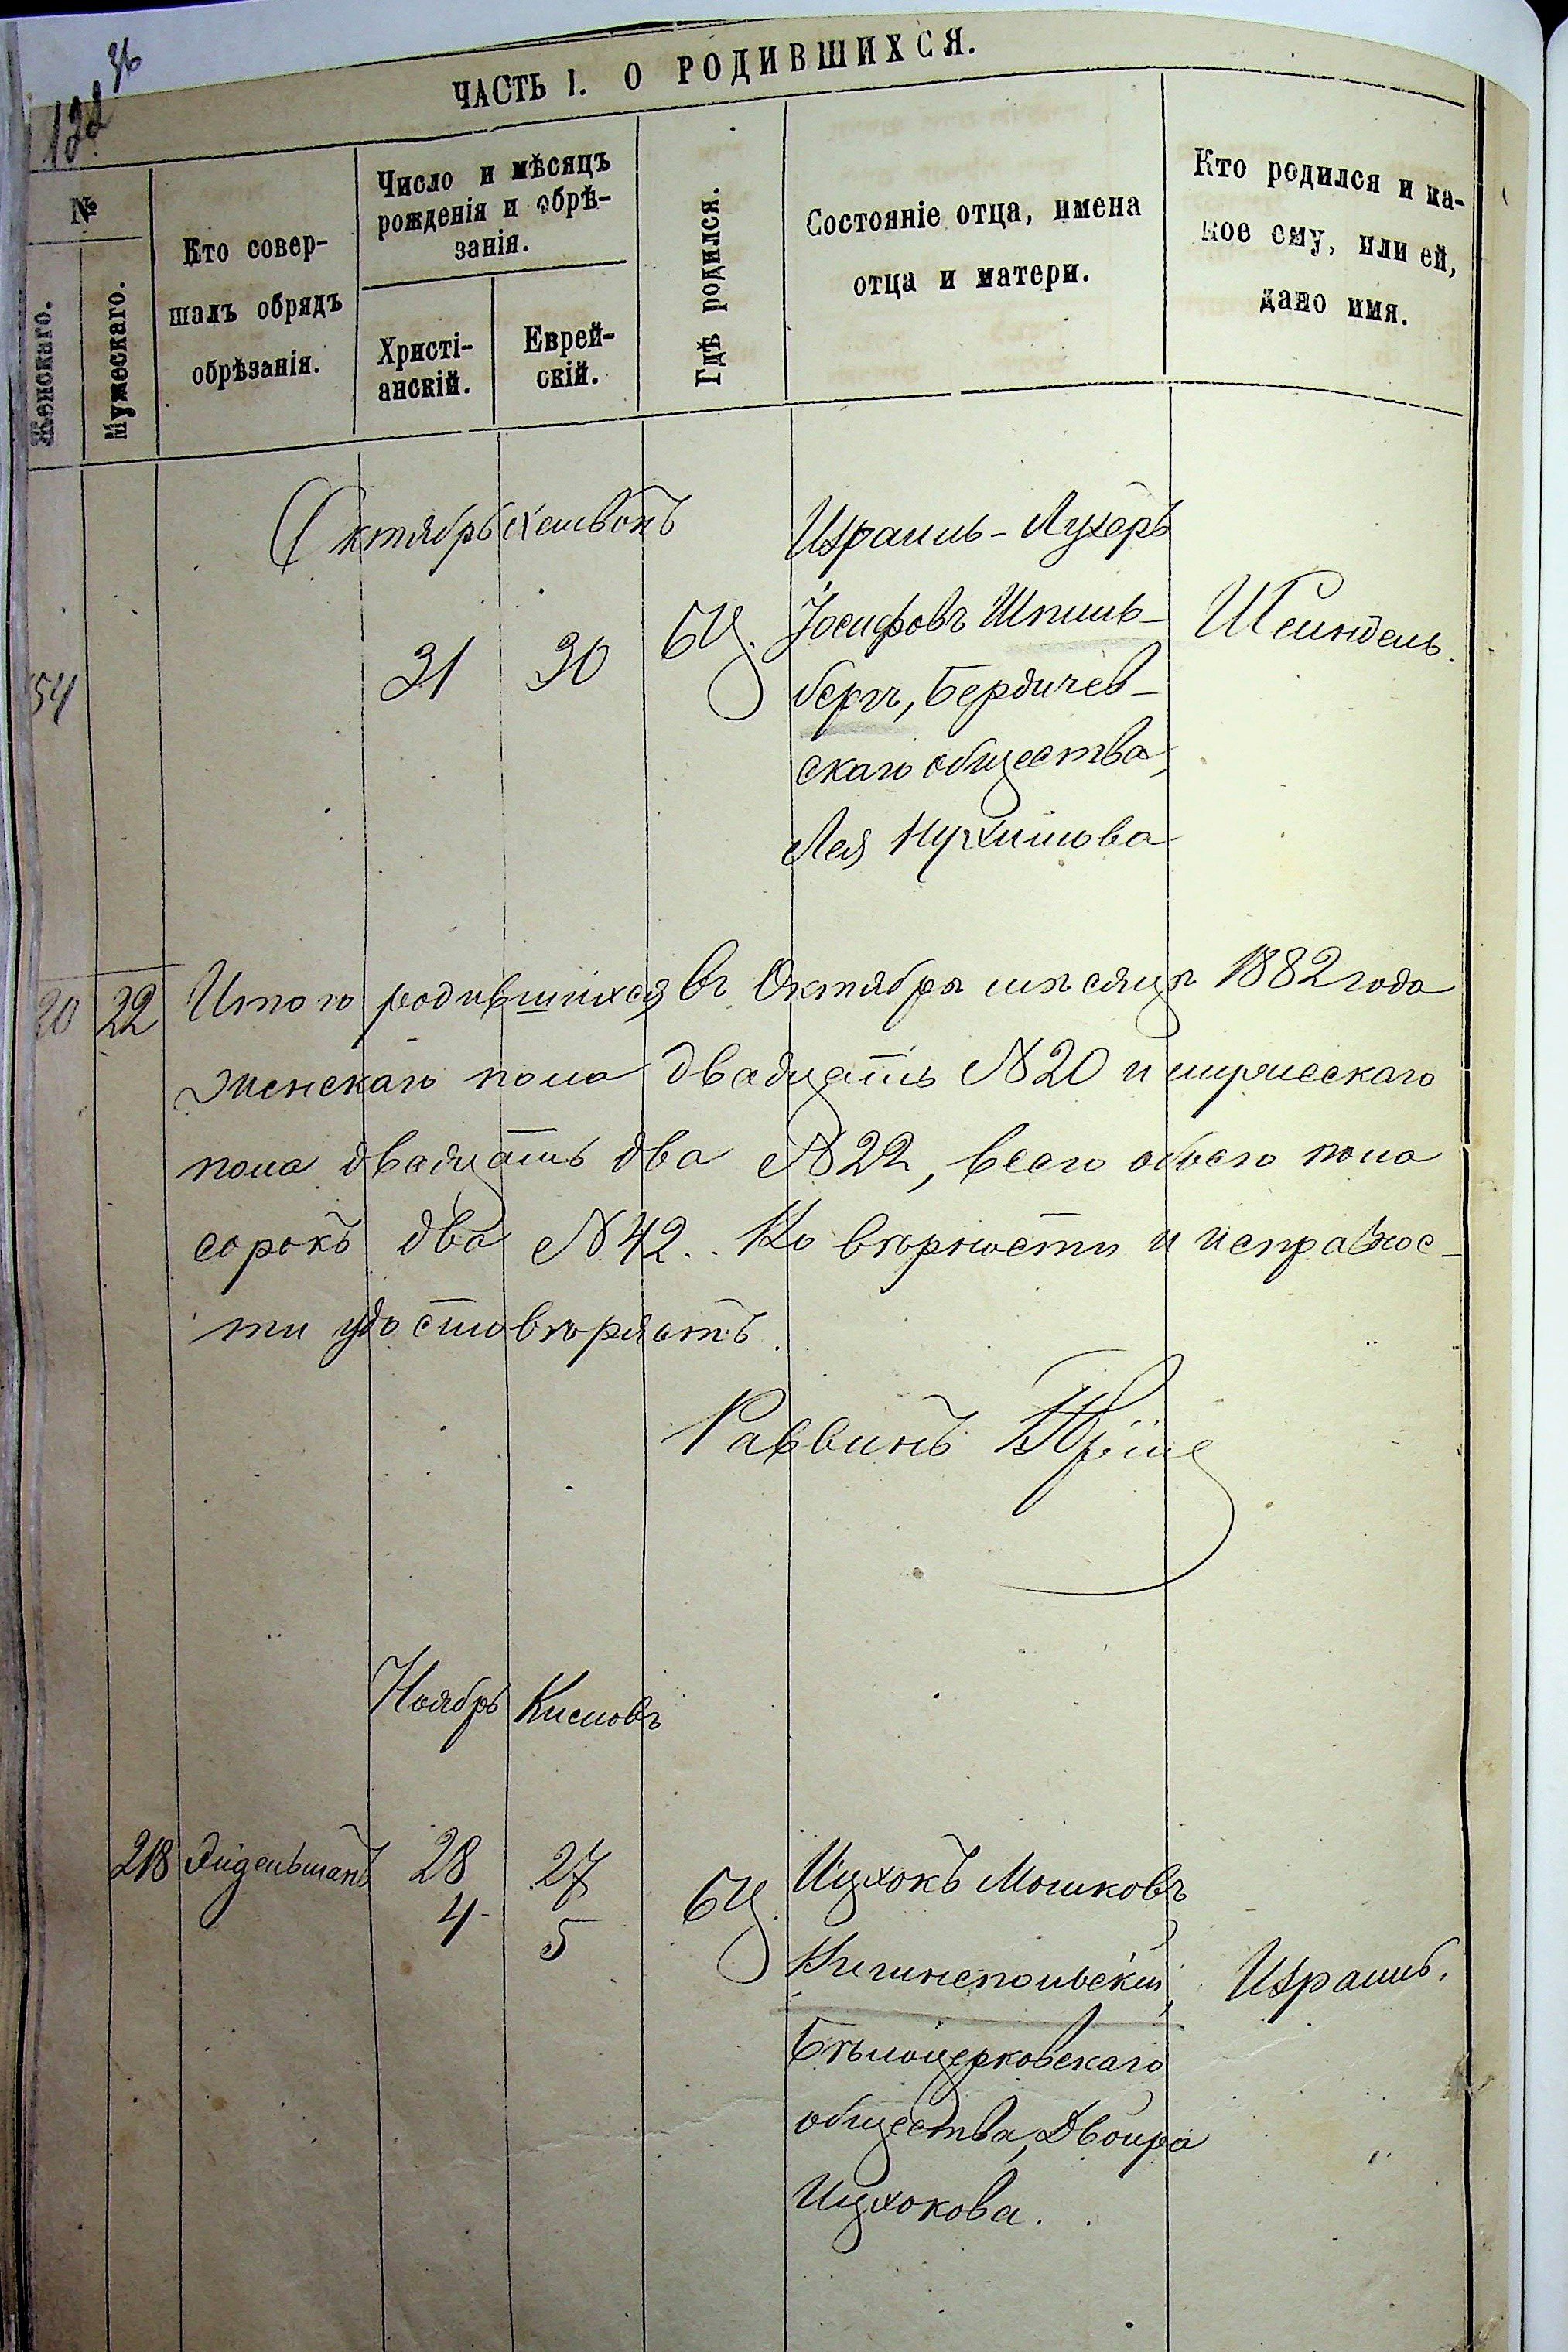 36
ЧАСТЬ I. О РОДИВШИХСЯ.
№
Женскаго.
Мужескаго.
Кто совер-
шалъ обрядъ
обрѣзанія.
Число и мѣсяцъ
рожденія и обрѣ-
занія.
Христі-
анскій.
Еврей-
скій.
Гдѣ родился.
Состояніе отца, имена
отца и матери.
Кто родился и ка-
кое ему, или ей,
дано имя.
Октябрь Хешвонъ
Израиль-Лухеръ
54 31 30 БЦ. Іосифовъ Шпиль- Шейндель.
бергъ, Бердичев-
скаго общества,
Лея Нухимова
20 22 Итого родившихся въ Октябрѣ мѣсяцѣ 1882 года
женскаго пола двадцать №20 и мужескаго
пола двадцать два №22, всего обоего пола
сорокъ два №42. Ко вѣрности и исправнос-
ти удостовѣряетъ.
Раввинъ
Ноябрь Кислевъ
218 Эйдельманъ 28 27 БЦ. Ицхокъ Мошковъ
4 5
Кигинепольскій, Израиль.
Бѣлоцерковскаго
общества, Двойра
Ицхокова.